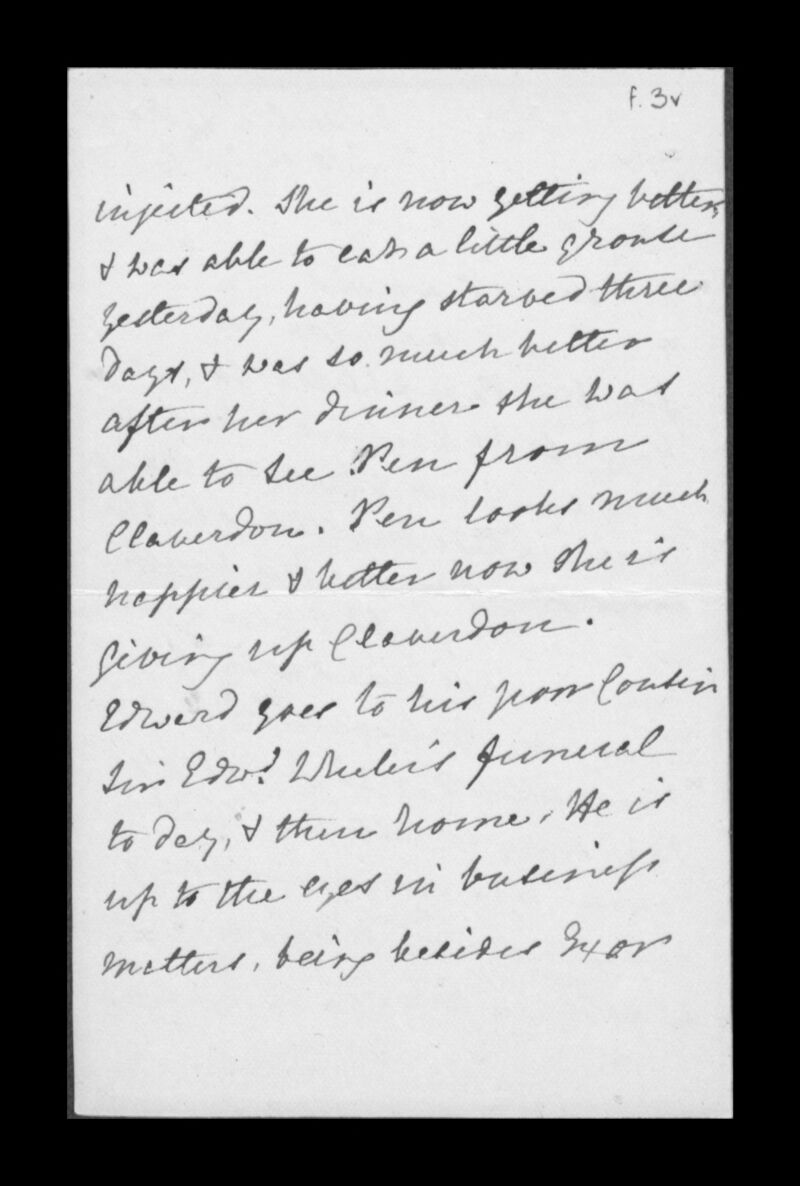 f. 3v
injected. She is now getting better,
& was able to eat a little grouse
yesterday, having starved three
days, & was so much better
after her dinner she was
able to see Pen from
Claverdon. Pen looks much
happier & better now she is
giving up Claverdon.
Edward goes to his poor Cousin
Sir Edwd. Wheler's funeral
to day, & then home. He is
up to the eyes in business
matters, being besides Exor